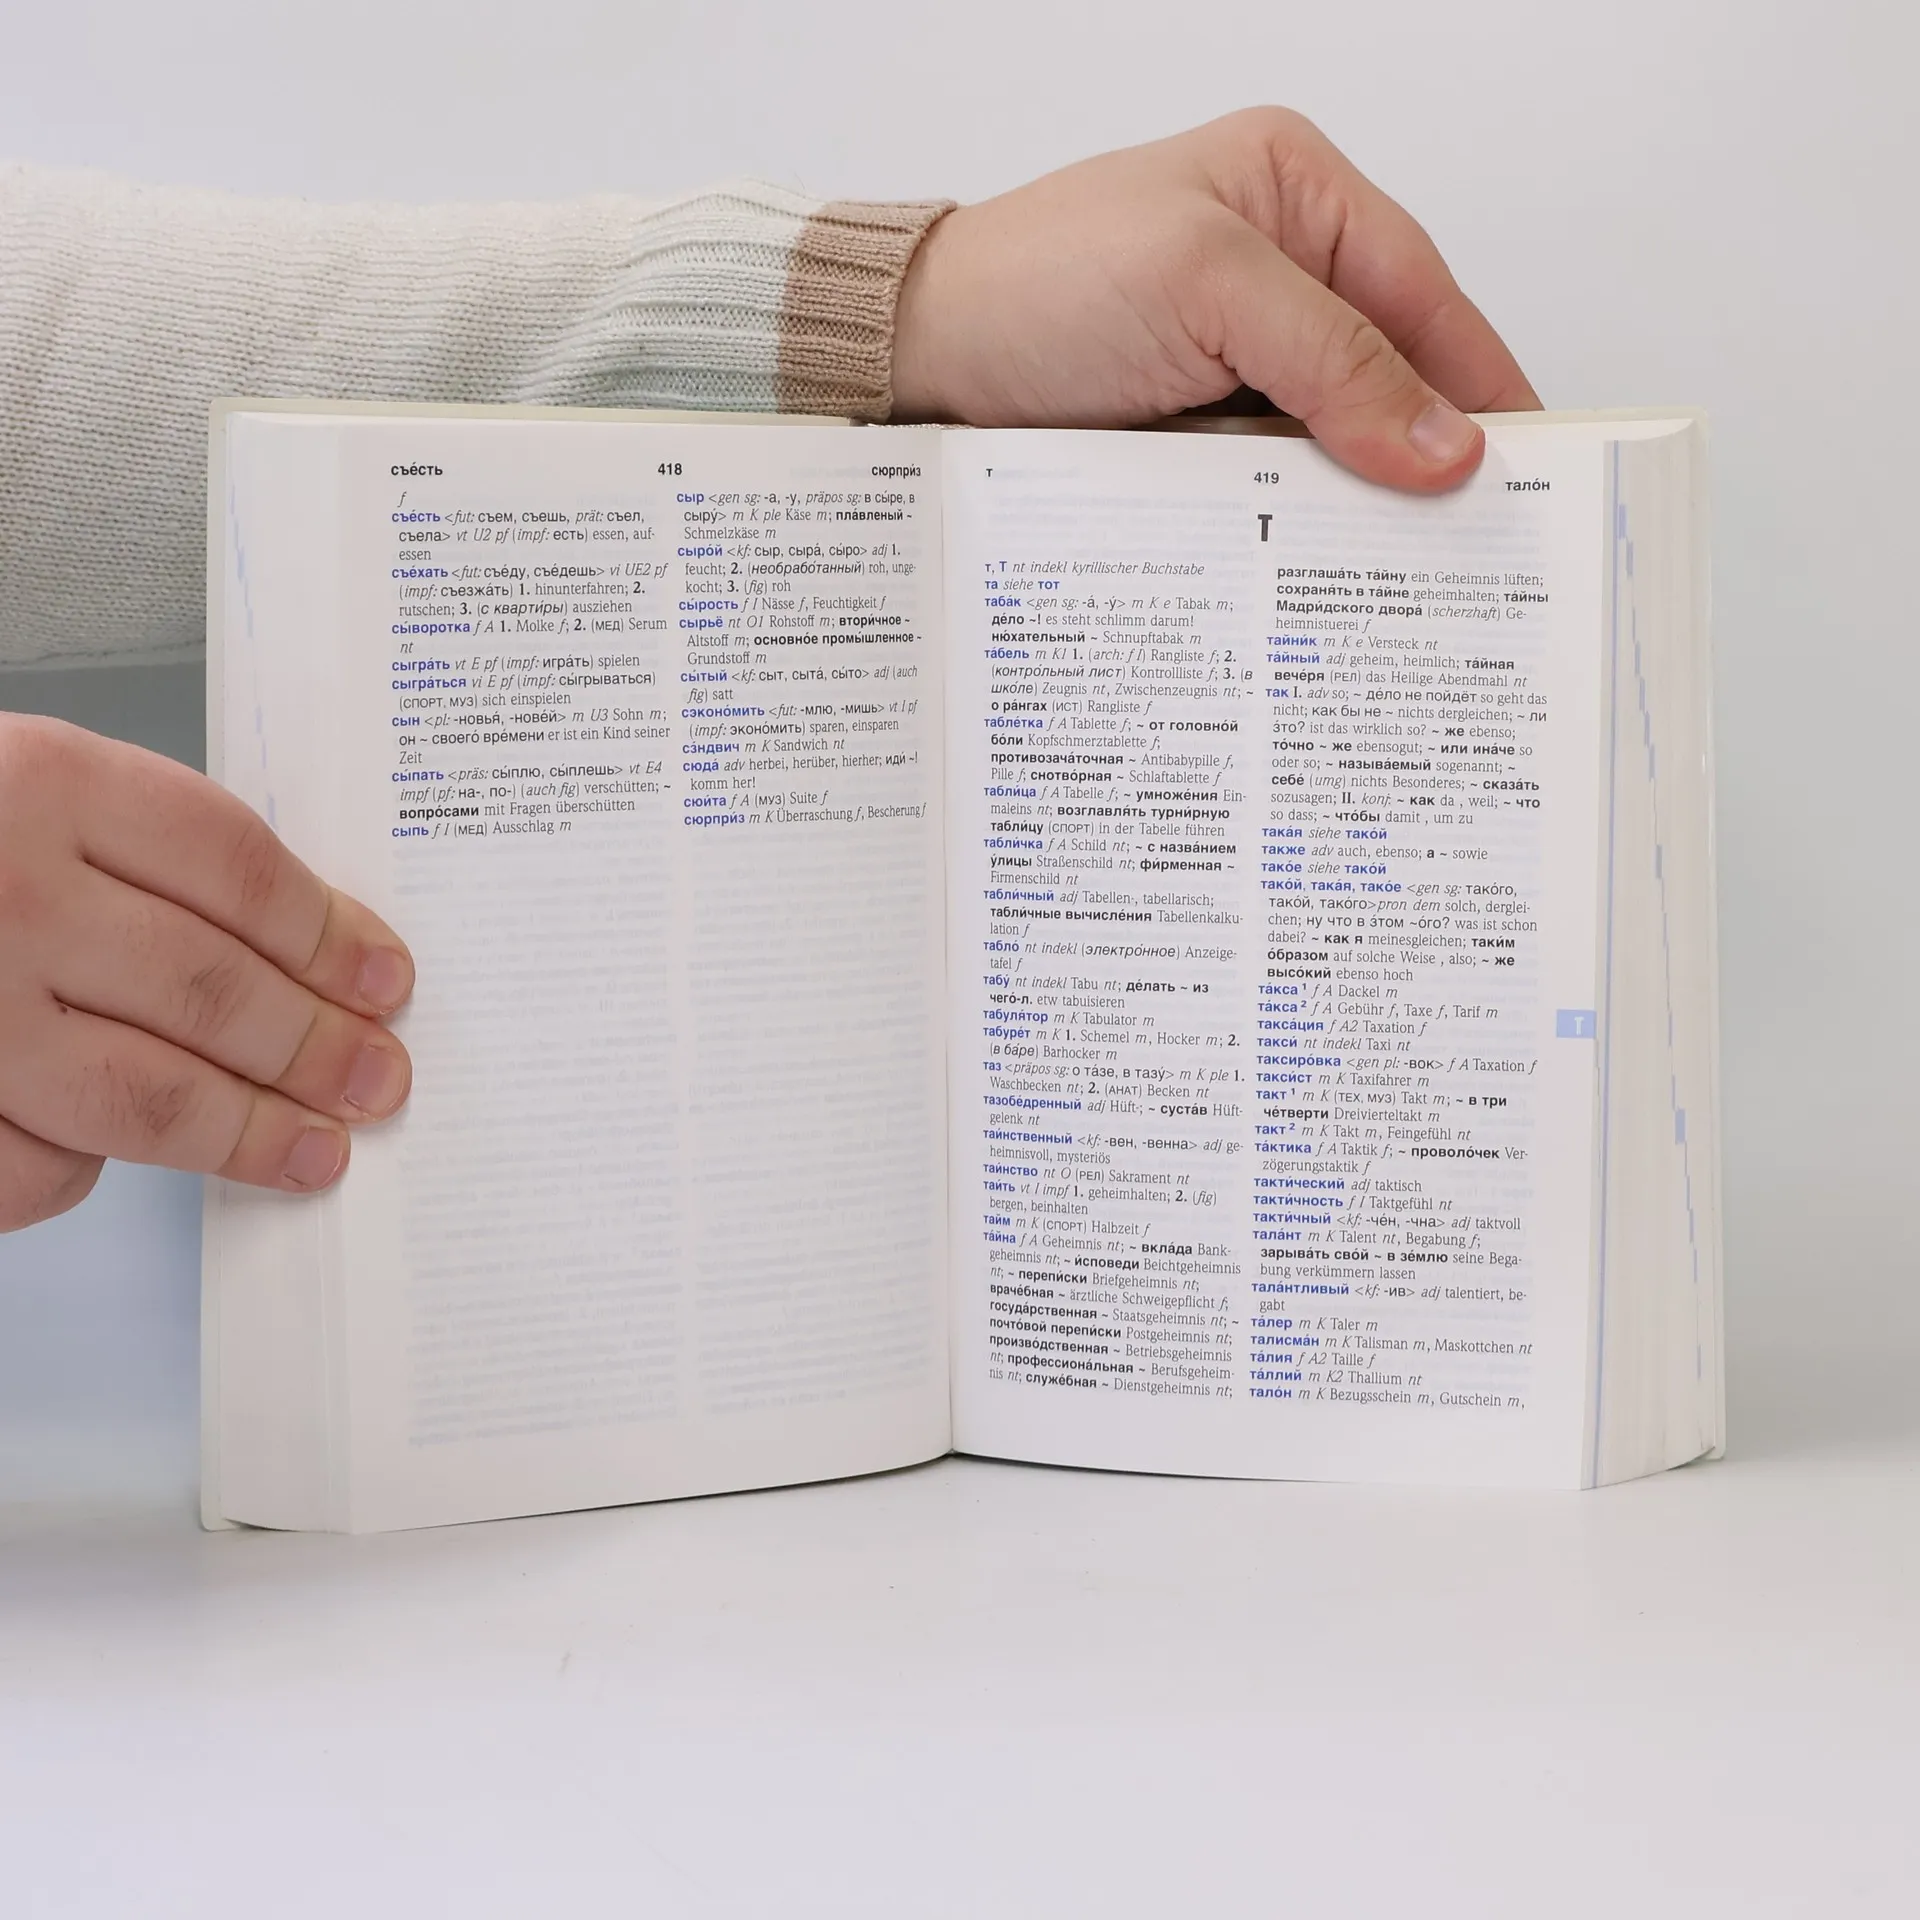 съе́сть 418 сюрпри́з
f
съе́сть <fut: съем, съешь, prät: съел,
съела> vt U2 pf (impf: есть) essen, auf-
essen
съе́хать <fut: съе́ду, съе́дешь> vi UE2 pf
(impf: съезжа́ть) 1. hinunterfahren; 2.
rutschen; 3. (с кварти́ры) ausziehen
сы́воротка f A 1. Molke f; 2. (МЕД) Serum
nt
сыгра́ть vt E pf (impf: игра́ть) spielen
сыгра́ться vi E pf (impf: сы́грываться)
(СПОРТ, МУЗ) sich einspielen
сын <pl: -новья́, -нове́й> m U3 Sohn m;
он ~ своего́ вре́мени er ist ein Kind seiner
Zeit
сы́пать <präs: сы́плю, сы́плешь> vt E4
impf (pf: на-, по-) (auch fig) verschütten; ~
вопро́сами mit Fragen überschütten
сыпь f I (МЕД) Ausschlag m
сыр <gen sg: -а, -у, präpos sg: в сы́ре, в
сыру́> m K ple Käse m; пла́вленый ~
Schmelzkäse m
сыро́й <kf: сыр, сыра́, сы́ро> adj 1.
feucht; 2. (необрабо́танный) roh, unge-
kocht; 3. (fig) roh
сы́рость f I Nässe f, Feuchtigkeit f
сырьё nt O1 Rohstoff m; втори́чное ~
Altstoff m; основно́е промы́шленное ~
Grundstoff m
сы́тый <kf: сыт, сыта́, сы́то> adj (auch
fig) satt
сэконо́мить <fut: -млю, -мишь> vt I pf
(impf: эконо́мить) sparen, einsparen
сэ́ндвич m K Sandwich nt
сюда́ adv herbei, herüber, hierher; иди́ ~!
komm her!
сюи́та f A (МУЗ) Suite f
сюрпри́з m K Überraschung f, Bescherung f
т 419 тало́н
Т
т, Т nt indekl kyrillischer Buchstabe
та siehe тот
таба́к <gen sg: -а́, -у́> m K e Tabak m;
де́ло ~! es steht schlimm darum!
ню́хательный ~ Schnupftabak m
та́бель m K1 1. (arch: f I) Rangliste f; 2.
(контро́льный лист) Kontrollliste f; 3. (в
шко́ле) Zeugnis nt, Zwischenzeugnis nt; ~
о ра́нгах (ИСТ) Rangliste f
табле́тка f A Tablette f; ~ от головно́й
бо́ли Kopfschmerztablette f;
противозача́точная ~ Antibabypille f,
Pille f; снотво́рная ~ Schlaftablette f
табли́ца f A Tabelle f; ~ умноже́ния Ein-
maleins nt; возглавля́ть турни́рную
табли́цу (СПОРТ) in der Tabelle führen
табли́чка f A Schild nt; ~ с назва́нием
у́лицы Straßenschild nt; фи́рменная ~
Firmenschild nt
табли́чный adj Tabellen-, tabellarisch;
табли́чные вычисле́ния Tabellenkalku-
lation f
табло́ nt indekl (электро́нное) Anzeige-
tafel f
табу́ nt indekl Tabu nt; де́лать ~ из
чего́-л. etw tabuisieren
табуля́тор m K Tabulator m
табуре́т m K 1. Schemel m, Hocker m; 2.
(в ба́ре) Barhocker m
таз <präpos sg: о та́зе, в тазу́> m K ple 1.
Waschbecken nt; 2. (АНАТ) Becken nt
тазобе́дренный adj Hüft-; ~ суста́в Hüft-
gelenk nt
таи́нственный <kf: -вен, -венна> adj ge-
heimnisvoll, mysteriös
таи́нство nt O (РЕЛ) Sakrament nt
таи́ть vt I impf 1. geheimhalten; 2. (fig)
bergen, beinhalten
тайм m K (СПОРТ) Halbzeit f
та́йна f A Geheimnis nt; ~ вкла́да Bank-
geheimnis nt; ~ и́споведи Beichtgeheimnis
nt; ~ перепи́ски Briefgeheimnis nt;
враче́бная ~ ärztliche Schweigepflicht f;
госуда́рственная ~ Staatsgeheimnis nt; ~
почто́вой перепи́ски Postgeheimnis nt;
произво́дственная ~ Betriebsgeheimnis
nt; профессиона́льная ~ Berufsgeheim-
nis nt; служе́бная ~ Dienstgeheimnis nt;
разглаша́ть та́йну ein Geheimnis lüften;
сохраня́ть в та́йне geheimhalten; та́йны
Мадри́дского двора́ (scherzhaft) Ge-
heimnistuerei f
тайни́к m K e Versteck nt
та́йный adj geheim, heimlich; та́йная
вече́ря (РЕЛ) das Heilige Abendmahl nt
так I. adv so; ~ де́ло не пойдёт so geht das
nicht; как бы не ~ nichts dergleichen; ~ ли
э́то? ist das wirklich so? ~ же ebenso;
то́чно ~ же ebensogut; ~ или ина́че so
oder so; ~ называ́емый sogenannt; ~
себе́ (umg) nichts Besonderes; ~ сказа́ть
sozusagen; II. konj: ~ как da , weil; ~ что
so dass; ~ что́бы damit , um zu
така́я siehe тако́й
также adv auch, ebenso; а ~ sowie
тако́е siehe тако́й
тако́й, така́я, тако́е <gen sg: тако́го,
тако́й, тако́го>pron dem solch, derglei-
chen; ну что в э́том ~о́го? was ist schon
dabei? ~ как я meinesgleichen; таки́м
о́бразом auf solche Weise , also; ~ же
высо́кий ebenso hoch
та́кса ¹ f A Dackel m
та́кса ² f A Gebühr f, Taxe f, Tarif m
такса́ция f A2 Taxation f
такси́ nt indekl Taxi nt
таксиро́вка <gen pl: -вок> f A Taxation f
такси́ст m K Taxifahrer m
такт ¹ m K (ТЕХ, МУЗ) Takt m; ~ в три
че́тверти Dreivierteltakt m
такт ² m K Takt m, Feingefühl nt
та́ктика f A Taktik f; ~ проволо́чек Ver-
zögerungstaktik f
такти́ческий adj taktisch
такти́чность f I Taktgefühl nt
такти́чный <kf: -че́н, -чна> adj taktvoll
тала́нт m K Talent nt, Begabung f;
зарыва́ть свой ~ в зе́млю seine Bega-
bung verkümmern lassen
тала́нтливый <kf: -ив> adj talentiert, be-
gabt
та́лер m K Taler m
талисма́н m K Talisman m, Maskottchen nt
та́лия f A2 Taille f
та́ллий m K2 Thallium nt
тало́н m K Bezugsschein m, Gutschein m,
Т